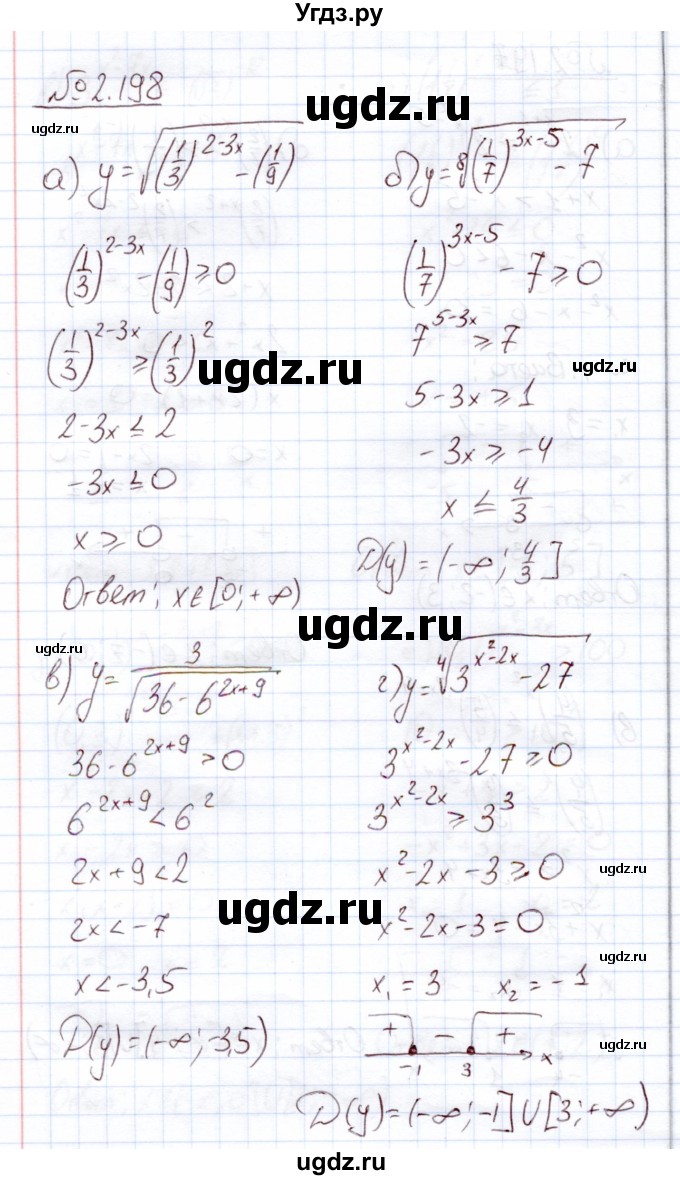 Угдз.ру
№2.198
ugdz.ru
ugdz.ru
ugdz.ru
а) y=√((1/3)^(2-3x) - (1/9))
(1/3)^(2-3x) - (1/9) ⩾ 0
(1/3)^(2-3x) ⩾ (1/3)^2
ugdz.ru
2-3x ≤ 2
-3x ≤ 0
x ⩾ 0
Ответ: x∈[0;+∞)
б) y=⁸√((1/7)^(3x-5) - 7)
(1/7)^(3x-5) - 7 ⩾ 0
7^(5-3x) ⩾ 7
5-3x ⩾ 1
-3x ⩾ -4
x ≤ 4/3
D(y) = (-∞; 4/3]
ugdz.ru
ugdz.ru
в) y= 3/√(36-6^(2x+9))
36-6^(2x+9) > 0
6^(2x+9) < 6^2
2x+9<2
2x < -7
x < -3,5
D(y)=(-∞;-3,5)
ugdz.ru
г) y=⁴√(3^(x²-2x) - 27)
3^(x²-2x) - 27 ⩾ 0
3^(x²-2x) ⩾ 3^3
x²-2x-3 ⩾ 0
ugdz.ru
x²-2x-3=0
x₁ = 3 x₂ = -1
ugdz.ru
+ - +
-1 3 x
D(y)=(-∞;-1]∪[3;+∞)
ugdz.ru